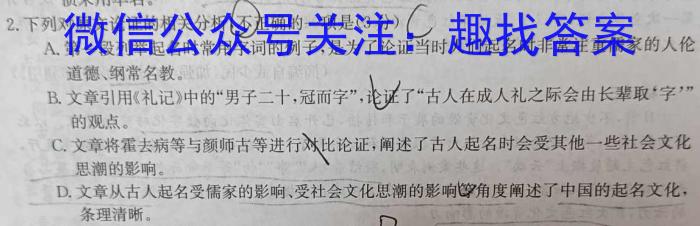 2.下列对原文论证的相关分析,不正确的一项是(3分)
微信公众号关注:趣找答案
A.第一段列举起名常用字词的例子,是为了论证当时人们起名时非常注重儒家的人伦
道德、纲常名教。
B.文章引用《礼记》中的“男子二十,冠而字”,论证了“古人在成人礼之际会由长辈取‘字’”
的观点。
C.文章将霍去病等与颜师古等进行对比论证,阐述了古人起名时会受其他一些社会文化
思潮的影响。
D.文章从古人起名受儒家的影响、受社会文化思潮的影响等角度阐述了中国的起名文化,
条理清晰。